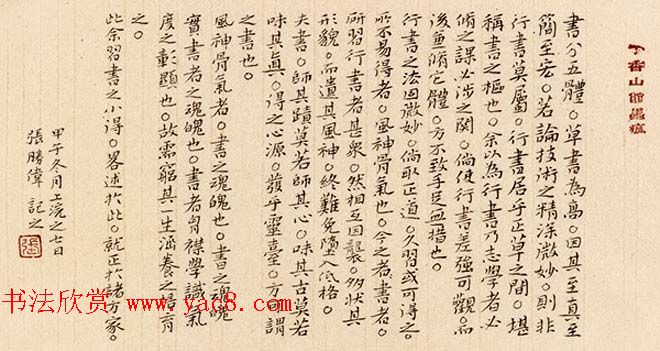 書分五體。草書為高。因其至真至
簡至宏。若論技術之精深微妙。則非
行書莫屬。行書居乎正草之間。堪
稱書之樞也。余以為行書乃志學者必
脩之課必涉之関。倘使行書差強可觀。而
後兼脩它體。方不致手足無措也。
行書之法固微妙。倘取正道。久習或可得之。
所不易得者。風神骨氣也。今之書者。
所習行書者甚衆。然相互因襲。多狀其
形貌。而遺其風神。終難免墮入低格。
夫書。師其蹟莫若師其心。味其古莫若
味其真。得之心源。發乎靈臺。方可謂
之書也。
風神骨氣者。書之魂魄也。書之魂魄
實書者之魂魄也。書者胷襟學識氣
度之彰顯也。故需窮其一生涵養之培育
之。
此余習書之小得。畧述於此。就正於諸方家。
甲子冬月上浣之七日
張勝偉記之
張
书法欣赏 www.yac8.com